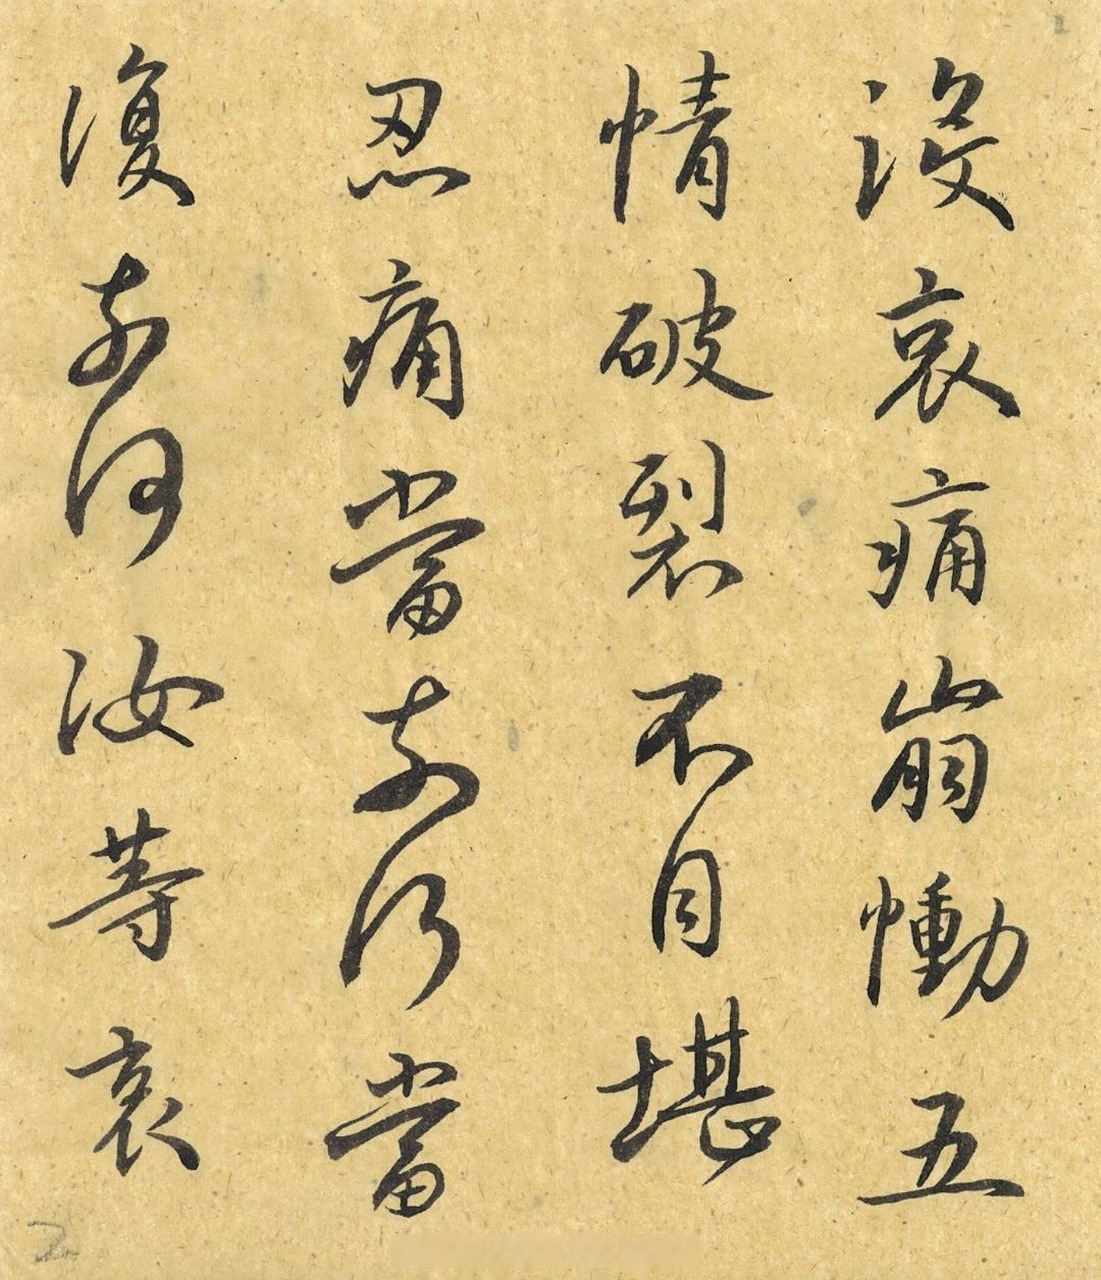 沒哀痛崩慟五
情破裂不自堪
忍痛當奈何當
復奈何汝等哀
2